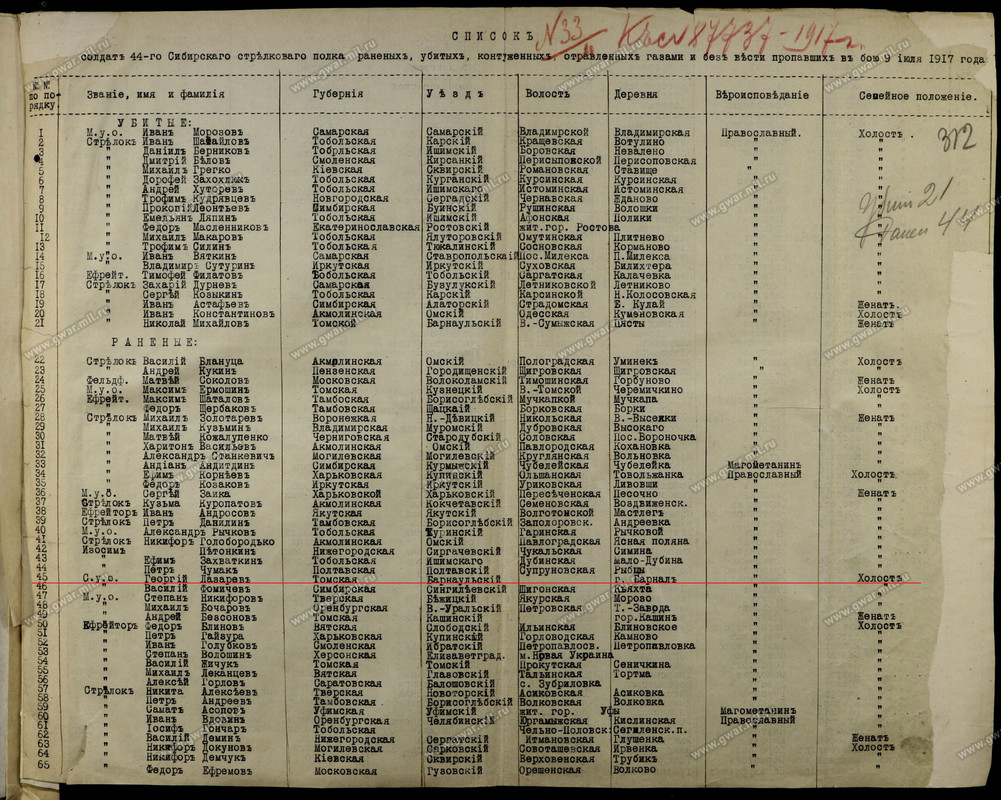 СПИСОКЪ № 33 К вх 87737 - 1917 г.
солдатъ 44-го Сибирскаго стрѣлковаго полка раненыхъ, убитыхъ, контуженныхъ, отравленныхъ газами и безъ вѣсти пропавшихъ въ бою 9 іюля 1917 года
№ № по порядку Званіе, имя и фамилія Губернія Уѣздъ Волость Деревня Вѣроисповѣданіе Семейное положеніе.
УБИТЫЕ:
1 М.у.о. Иванъ Морозовъ Самарская Самарскій Владимрской Владимирская Православный. Холостъ . 312
2 Стрѣлокъ Иванъ Шамайловъ Тобольская Карскій Кращевская Вотулино " "
3 " Даніилъ Верниковъ Тобольская Ишимскій Боровская Невалено " "
4 " Дмитрій Бѣловъ Смоленская Кирсанкій Перисыповской Персиоповская " "
5 " Михаилъ Грегко Кіевская Сквирскій Романовская Ставище " "
6 " Дорофей Тобольская Курганскій Курсинская Курсинская " "
7 " Андрей Хуторевъ Тобольская Ишимскаго Истоминская Истоминская " "
8 " Трофимъ Кудрявцевъ Новгородская Сергадскій Чернавская Жданово " "
9 " Прокопій Леонтьевъ Симбирская Буинскій Рушинская Волошки " "
10 " Емельянъ Ляпинъ Тобольская Ишимскій Аронская Полики " "
11 " Федоръ Масленниковъ Екатеринославская Ростовскій жит.гор. Ростова " "
12 " Михаилъ Макаровъ Тобольская Ялуторовскій Омутинская Плитнево " "
13 " Трофимъ Силинъ Тобольская Тюкалинскій Сосновская Корманово " "
14 М.у.о. Иванъ Вяткинъ Самарская Ставропольскай Пос.Милекса П.Милекса " "
15 " Владимиръ Сутуринъ Иркутская Иркутскій Суховская Билихтера " "
16 Ефрейт. Тимофей Филатовъ Тобольская Тобольскій Саргатская Калачевка " "
17 Стрѣлокъ Захарій Дурневъ Самарская Бузулукскій Летниковской Летниково " "
18 " Сергѣй Козыкинъ Тобольская Карскій Карсинской Н.Колосовская " "
19 " Иванъ Астафьевъ Симбирская Алаторскій Страдомская Б. Кулай " Женатъ.
20 " Иванъ Константиновъ Акмолинская Омскій Одесская Куменовская " Холостъ
21 " Николай Михайловъ Томской Барнаульскій В.-Сумыжская Цясты " Женатъ
РАНЕНЫЕ:
22 Стрѣлокъ Василій Блануца Акмолинская Омскій Пологрaдская Уминекъ " Холостъ
23 " Андрей Кукинъ Пензенская Городищенскій Щигровская Щигровская " "
24 Фельдф. Матвѣй Соколовъ Московская Волоколамскій Тимошинская Горбуново " Женатъ
25 М.у.о. Максимъ Ермошинъ Томская Кузнецкій В.-Томской Черемичкино " Холостъ
26 Ефрейт. Максимъ Шаталовъ Тамбоская Борисоглѣбскій Мучкапкой Мучкапа " "
27 " Федоръ Щербаковъ Тамбовская Шацкаій Борковская Борки " "
28 Стрѣлокъ Михаилъ Золотаревъ Воронежская Н.-Дѣвицкій Никольская В.-Выселки " Женатъ
29 " Михаилъ Кузьминъ Владимирская Муромскій Дубровская Высокаго " "
30 " Матвѣй Кожалупенко Черниговская Стародубскій Соловская Пос.Вороночка " "
31 " Харитонъ Васильевъ Акмолинская Омскій Павлородская Кохановка " "
32 " Александръ Станкевичъ Могилевская Могилевскій Круглянская Вольновка " "
33 " Андіанъ Андитдинъ Симбирская Курмытскій Чубелейская Чубелейка Магометанинъ "
34 " Ефимъ Корнѣевъ Харьковская Купянскій Ольшанская Товольжанка Православный Холостъ
35 " Федоръ Козаковъ Иркутская Иркутскій Уриковская Ливовши " "
36 М.у.о. Сергѣй Заика Харьковской Харьковскій Пересѣченская Песочно " Женатъ
37 Стрѣлокъ Кузьма Куропатовъ Акмолинская Кокчетавскій Семеновская Воздвиженск. " "
38 Ефрейторъ Иванъ Андросовъ Якутская Якутскій Волготомской Мастлегъ " "
39 Стрѣлокъ Петръ Данилинъ Тамбовская Борисоглѣбскій Заполоровск. Андреевка " "
40 М.у.о. Александръ Рычковъ Тобольская Туринскій Гаринская Рычковой " "
41 Стрѣлокъ Никифоръ Голобородько Акмолинская Омскій Павлоградская Ясная поляна " "
42 Изосимъ Пѣтонкинъ Нижегородская Сиргачевскій Чукальская Симина " "
43 " Ефимъ Захваткинъ Тобольская Ишимскаго Дубинская мало-Дубина " "
44 " Петръ Чумакъ Полтавская Полтавскій Супруновская Рыбцы " "
45 С.у.о. Георгій Лазаревъ Томская Барнаульскій г. Барналъ " Холостъ
46 " Василій Фомичевъ Симбирская Сингилѣевскій Шигонская Кьяхтѣ " "
47 М.у.о. Степанъ Никифоровъ Тверская Бѣжицкій Якурская Морово " "
48 " Михаилъ Бочаровъ Оренбургская В.-Уральскій Петровская Т.-Завода " "
49 " Андрей Безсоновъ Томская Кашинскій гор.Кашинъ " Женатъ
50 Ефрейторъ Федоръ Блиновъ Вятская Слободскій Ильинская Блиновское " Холостъ
51 " Петръ Гайвура Харьковская Купинскій Горловодская Камново " "
52 " Иванъ Голубковъ Смоленская Ибратскій Петропавлосв. Петропавловка " "
53 " Степанъ Волошинъ Херсонская Елизаветград. м.Новая Украина " "
54 " Василій Жичукъ Томская Томскій Прокутская Сеничкина " "
55 " Михаилъ Леканцевъ Вятская Глазовскій Тальинская Тортма " "
56 " Алексѣй Горловъ Саратовская Балошовскій с. Зубриловка " "
57 Стрѣлокъ Никита Алексѣевъ Тверская Новоторскій Асиковская Асиковка " "
58 " Петръ Андреевъ Тамбовская Борисоглѣбскій Волковская Волковка " "
59 " Саматъ Асоповъ Уфимская Уфимскій жит. гор. Уфы Магометанинъ "
60 " Иванъ Вдовинъ Оренбургская Челябинскій Юргамыжская Кислинская Православный "
61 " Іосифъ Гончаръ Тобольская Чельно-Половск: Сегиленск.п. " "
62 " Василій Деминъ Нижегородская Сергатскій Итмановская Глушенка " Женатъ
63 " Никифоръ Докуновъ Могилевская Сѣрковскій Совоташевская Ирвенка " Холостъ
64 " Никифоръ Демчукъ Кіевская Сквирскій Верховенская Трубикъ " "
65 " Федоръ Ефремовъ Московская Гузовскій Орешенская Волково " "
www.gwar.mil.ru